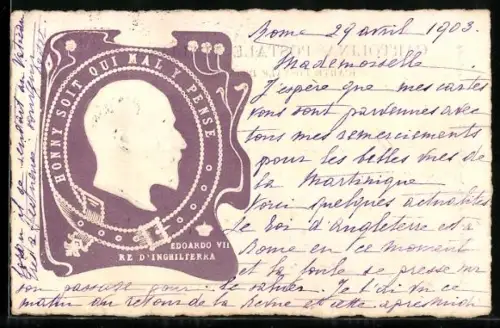 HONNY SOIT QUI MAL Y PENSE
EDOARDO VII
RE D'INGHILTERRA
CARTOLINA POSTALE
Rome 29 avril 1903.
Mademoiselle
J'espère que mes cartes
vous sont parvenues avec
tous mes remerciements
pour les belles vues de
la Martinique
Voici quelques actualités
Le Roi d'Angleterre est à
Rome en ce moment
et la foule se presse sur
son passage pour le saluer. Je l'ai vu ce
matin au retour de la Reine et cette après midi
se rendait au Vatican